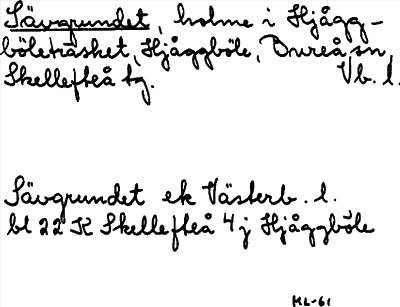 Sävgrundet, holme i Hjågg-
böleträsket, Hjåggböle, Bureå sn,
Skellefteå tg. Vb. l.
Sävgrundet ek Västerb. l.
bl 22 K Skellefteå 4j Hjåggböle
ML-61